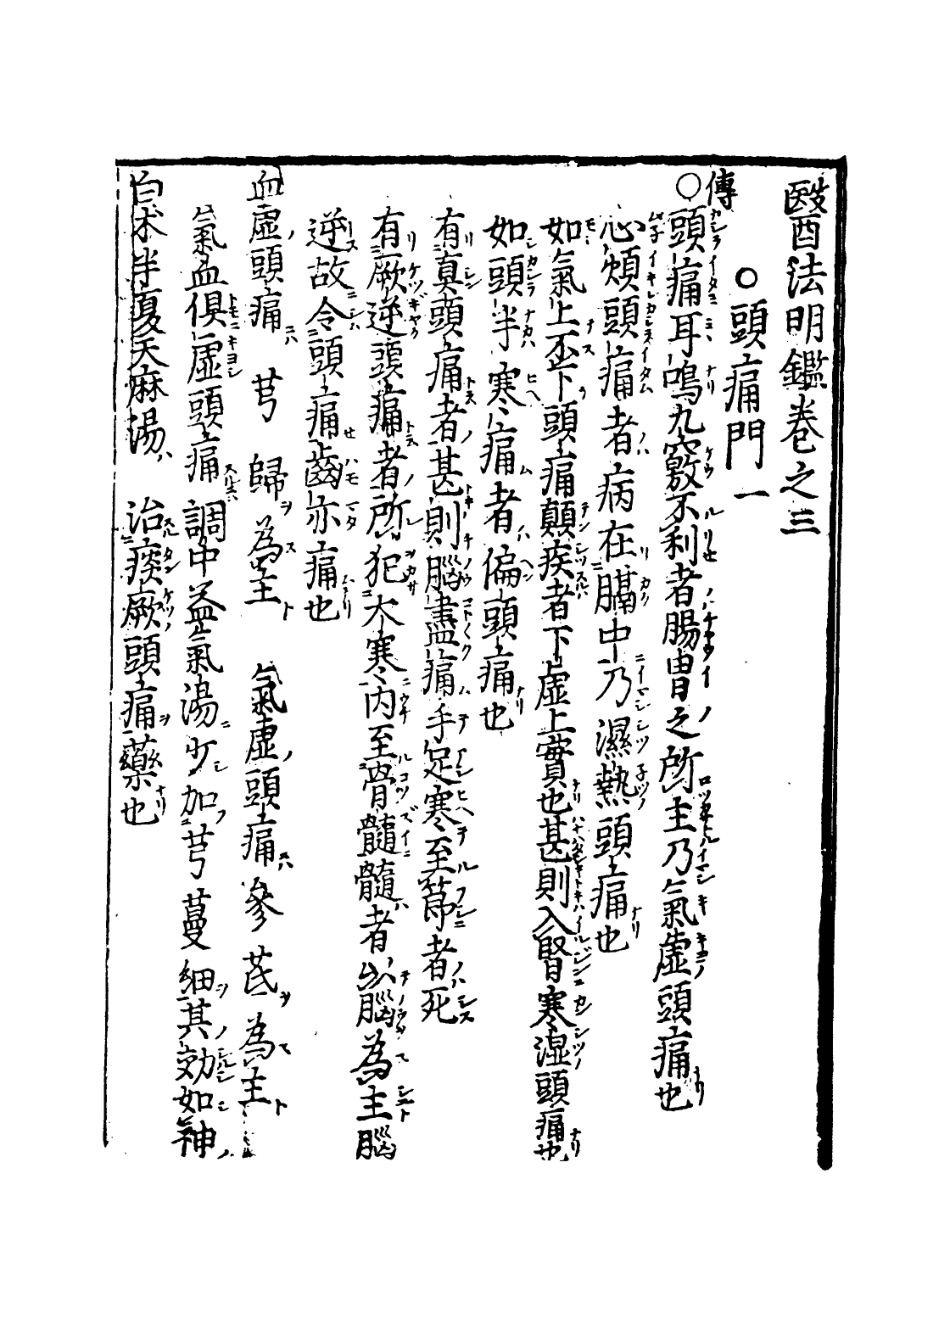 醫法明鑑卷之三
○頭痛門一
傳
○頭痛耳鳴九竅不利者腸胃之所主乃氣虛頭痛也
心煩頭痛者病在膈中乃濕熱頭痛也
如氣上不下頭痛顛疾者下虛上實也甚則入腎寒湿頭痛也
如頭半寒痛者偏頭痛也
有真頭痛者甚則腦盡痛手足寒至節者死
有厥逆頭痛者所犯大寒內至骨髓髓者以腦為主腦
逆故令頭痛齒亦痛也
血虛頭痛 芎 歸為主 氣虛頭痛參 芪為主
氣血俱虛頭痛 調中益氣湯少加芎 蔓 細其効如神
白朮半夏天麻湯 治痰厥頭痛藥也